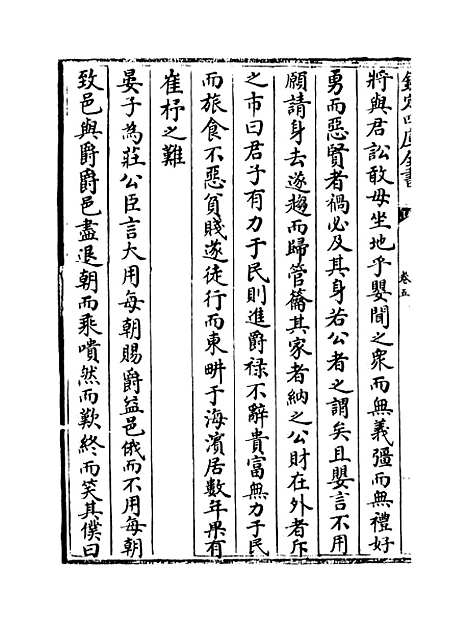 欽定四庫全書
卷五
將與君訟敢毋坐地乎嬰聞之衆而無義彊而無禮好
勇而惡賢者禍必及其身若公者之謂矣且嬰言不用
願請身去遂趨而歸管籥其家者納之公財在外者斥
之市曰君子有力于民則進爵禄不辭貴富無力于民
而旅食不惡貧賤遂徒行而東畊于海濱居數年果有
崔杼之難
晏子為莊公臣言大用每朝賜爵益邑俄而不用每朝
致邑與爵爵邑盡退朝而乘嘳然而歎終而笑其僕曰